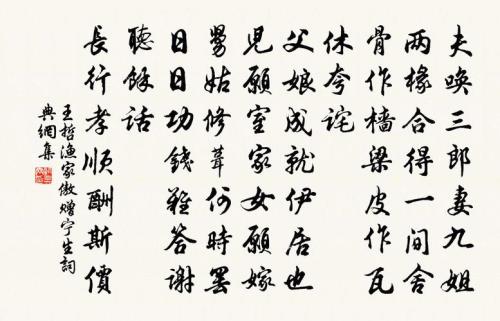 夫唤三郎妻九姐
两椽合得一间舍
骨作樯梁皮作瓦
休夸诧
父娘成就伊居也
儿愿室家女愿嫁
舅姑修葺何时罢
日日功钱难答谢
聽馀话
长行孝顺酬斯價
王哲渔家傲赠宁生詞
典網集